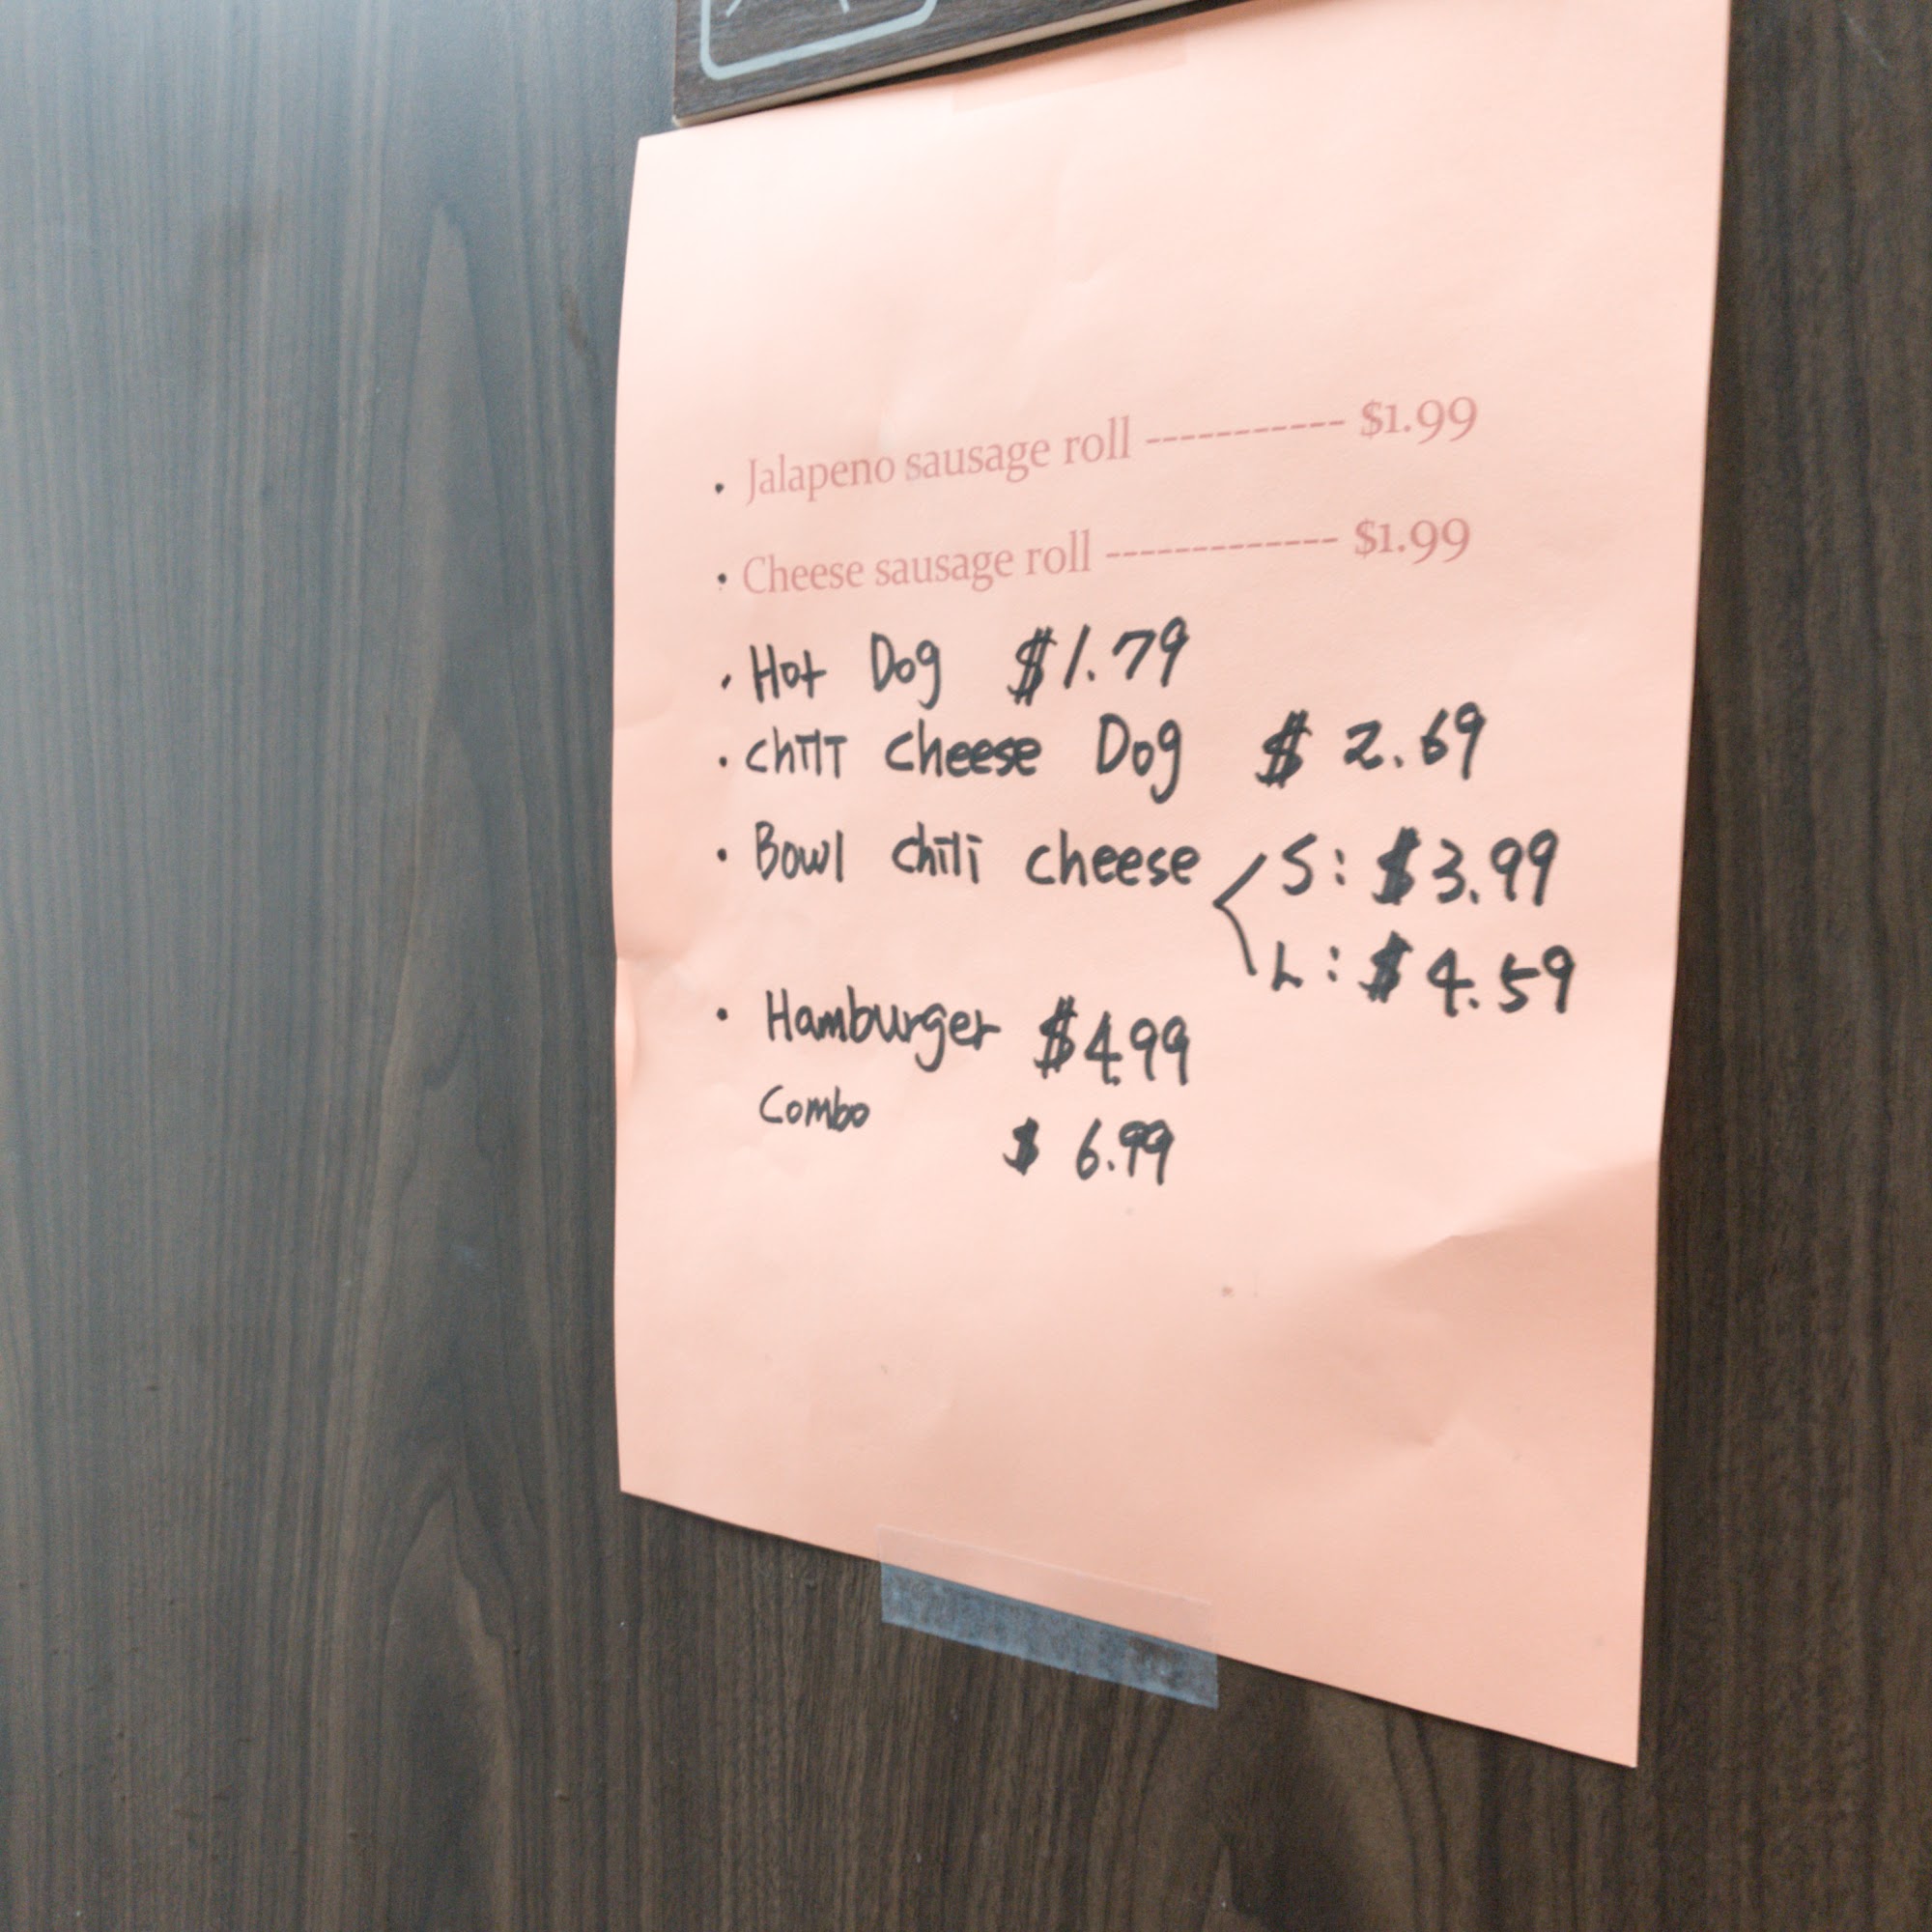 • Jalapeno sausage roll ----------- $1.99
• Cheese sausage roll ------------- $1.99
• Hot Dog $1.79
• chili cheese Dog $2.69
• Bowl chili cheese < S: $3.99
L: $4.59
• Hamburger $4.99
Combo $6.99